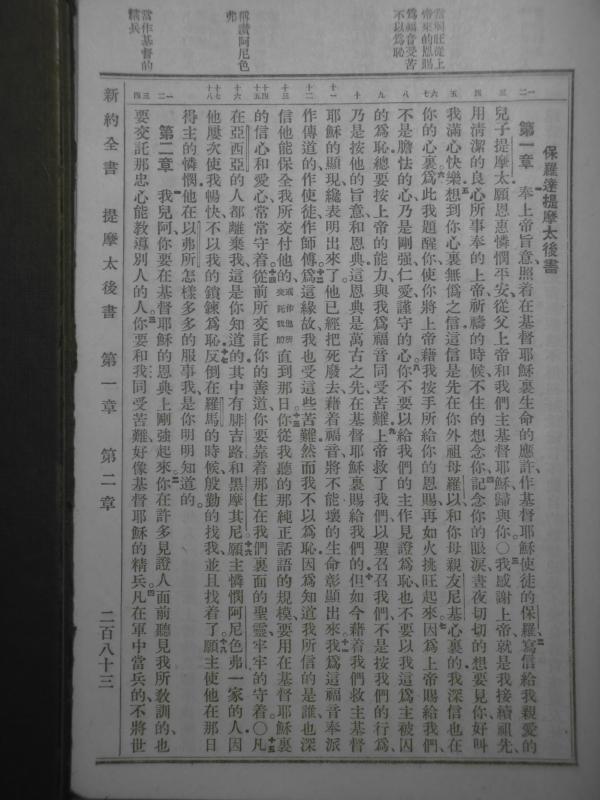 當挑旺從上
帝來的恩賜
爲福音受苦
不以爲恥
稱讚阿尼色
弗
當作基督的
精兵
保羅達提摩太後書
第一章 奉上帝旨意、照着在基督耶穌裏生命的應許作基督耶穌使徒的保羅、寫信給我親愛的
兒子提摩太、願恩惠憐憫平安、從父上帝和我們主基督耶穌歸與你。〇我感謝上帝、就是我接續祖先、
用清潔的良心所事奉的上帝、祈禱的時候、不住的想念你、記念你的眼淚、晝夜切切的想要見你、好叫
我滿心快樂、想到你心裏無僞之信、這信是先在你外祖母羅以、和你母親友尼基心裏的、我深信也在
你的心裏。爲此我題醒你、使你將上帝藉我按手所給你的恩賜、再如火挑旺起來。因爲上帝賜給我們、
不是膽怯的心、乃是剛強仁愛謹守的心。你不要以給我們的主作見證爲恥、也不要以我這爲主被囚
的爲恥、總要按上帝的能力、與我爲福音同受苦難。上帝救了我們、以聖召召我們、不是按我們的行爲、
乃是按他的旨意、和恩典、這恩典是萬古之先、在基督耶穌裏賜給我們的。但如今藉着我們救主基督
耶穌的顯現、纔表明出來了、他已經把死廢去、藉着福音、將不能壞的生命彰顯出來。我爲這福音奉派
作傳道的、作使徒、作師傅。爲這緣故、我也受這些苦難、然而我不以爲恥、因爲知道我所信的是誰、也深
信他能保全我所交付他的、或作他所交託我的直到那日。你從我聽的那純正話語的規模、要用在基督耶穌裏
的信心和愛心、常常守着。從前所交託你的善道、你要靠着那住在我們裏面的聖靈、牢牢的守着。〇凡
在亞西亞的人都離棄我、這是你知道的、其中有腓吉路和黑摩其尼。願主憐憫阿尼色弗一家的人、因
他屢次使我暢快、不以我的鎖鍊爲恥。反倒在羅馬的時候、殷勤的找我、並且找着了。願主使他在那日
得主的憐憫、他在以弗所怎樣多多的服事我、是你明明知道的。
第二章 我兒阿、你要在基督耶穌的恩典上剛強起來。你在許多見證人面前聽見我所教訓的、也
要交託那忠心能教導別人的人。你要和我同受苦難、好像基督耶穌的精兵。凡在軍中當兵的、不將世
新約全書 提摩太後書 第一章 第二章 二百八十三